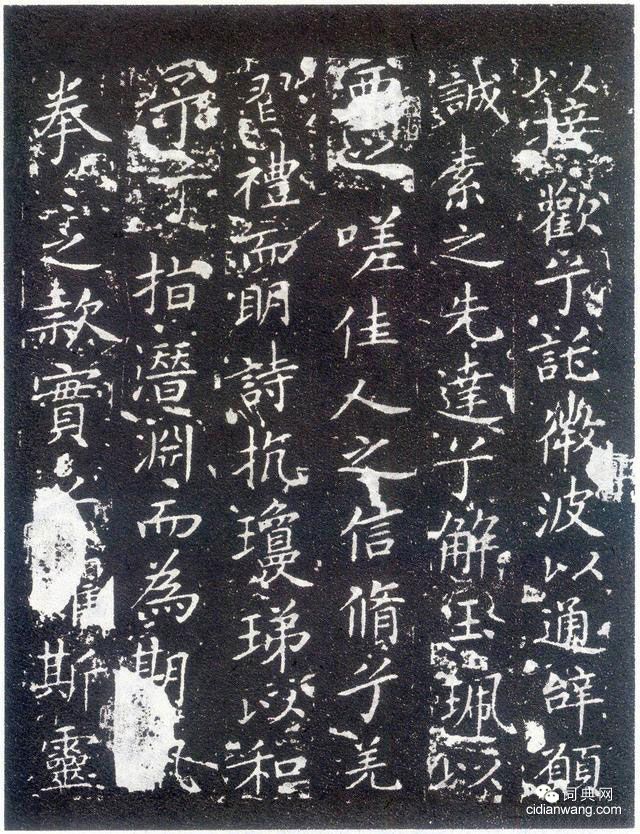 以接歡兮託微波以通辭願
誠素之先達兮解玉珮以
要之嗟佳人之信脩兮羌
習禮而眀詩抗瓊珶以和
予兮指潛淵而為期
拳〻之款實兮懼斯靈
词典网
cidianwang.com